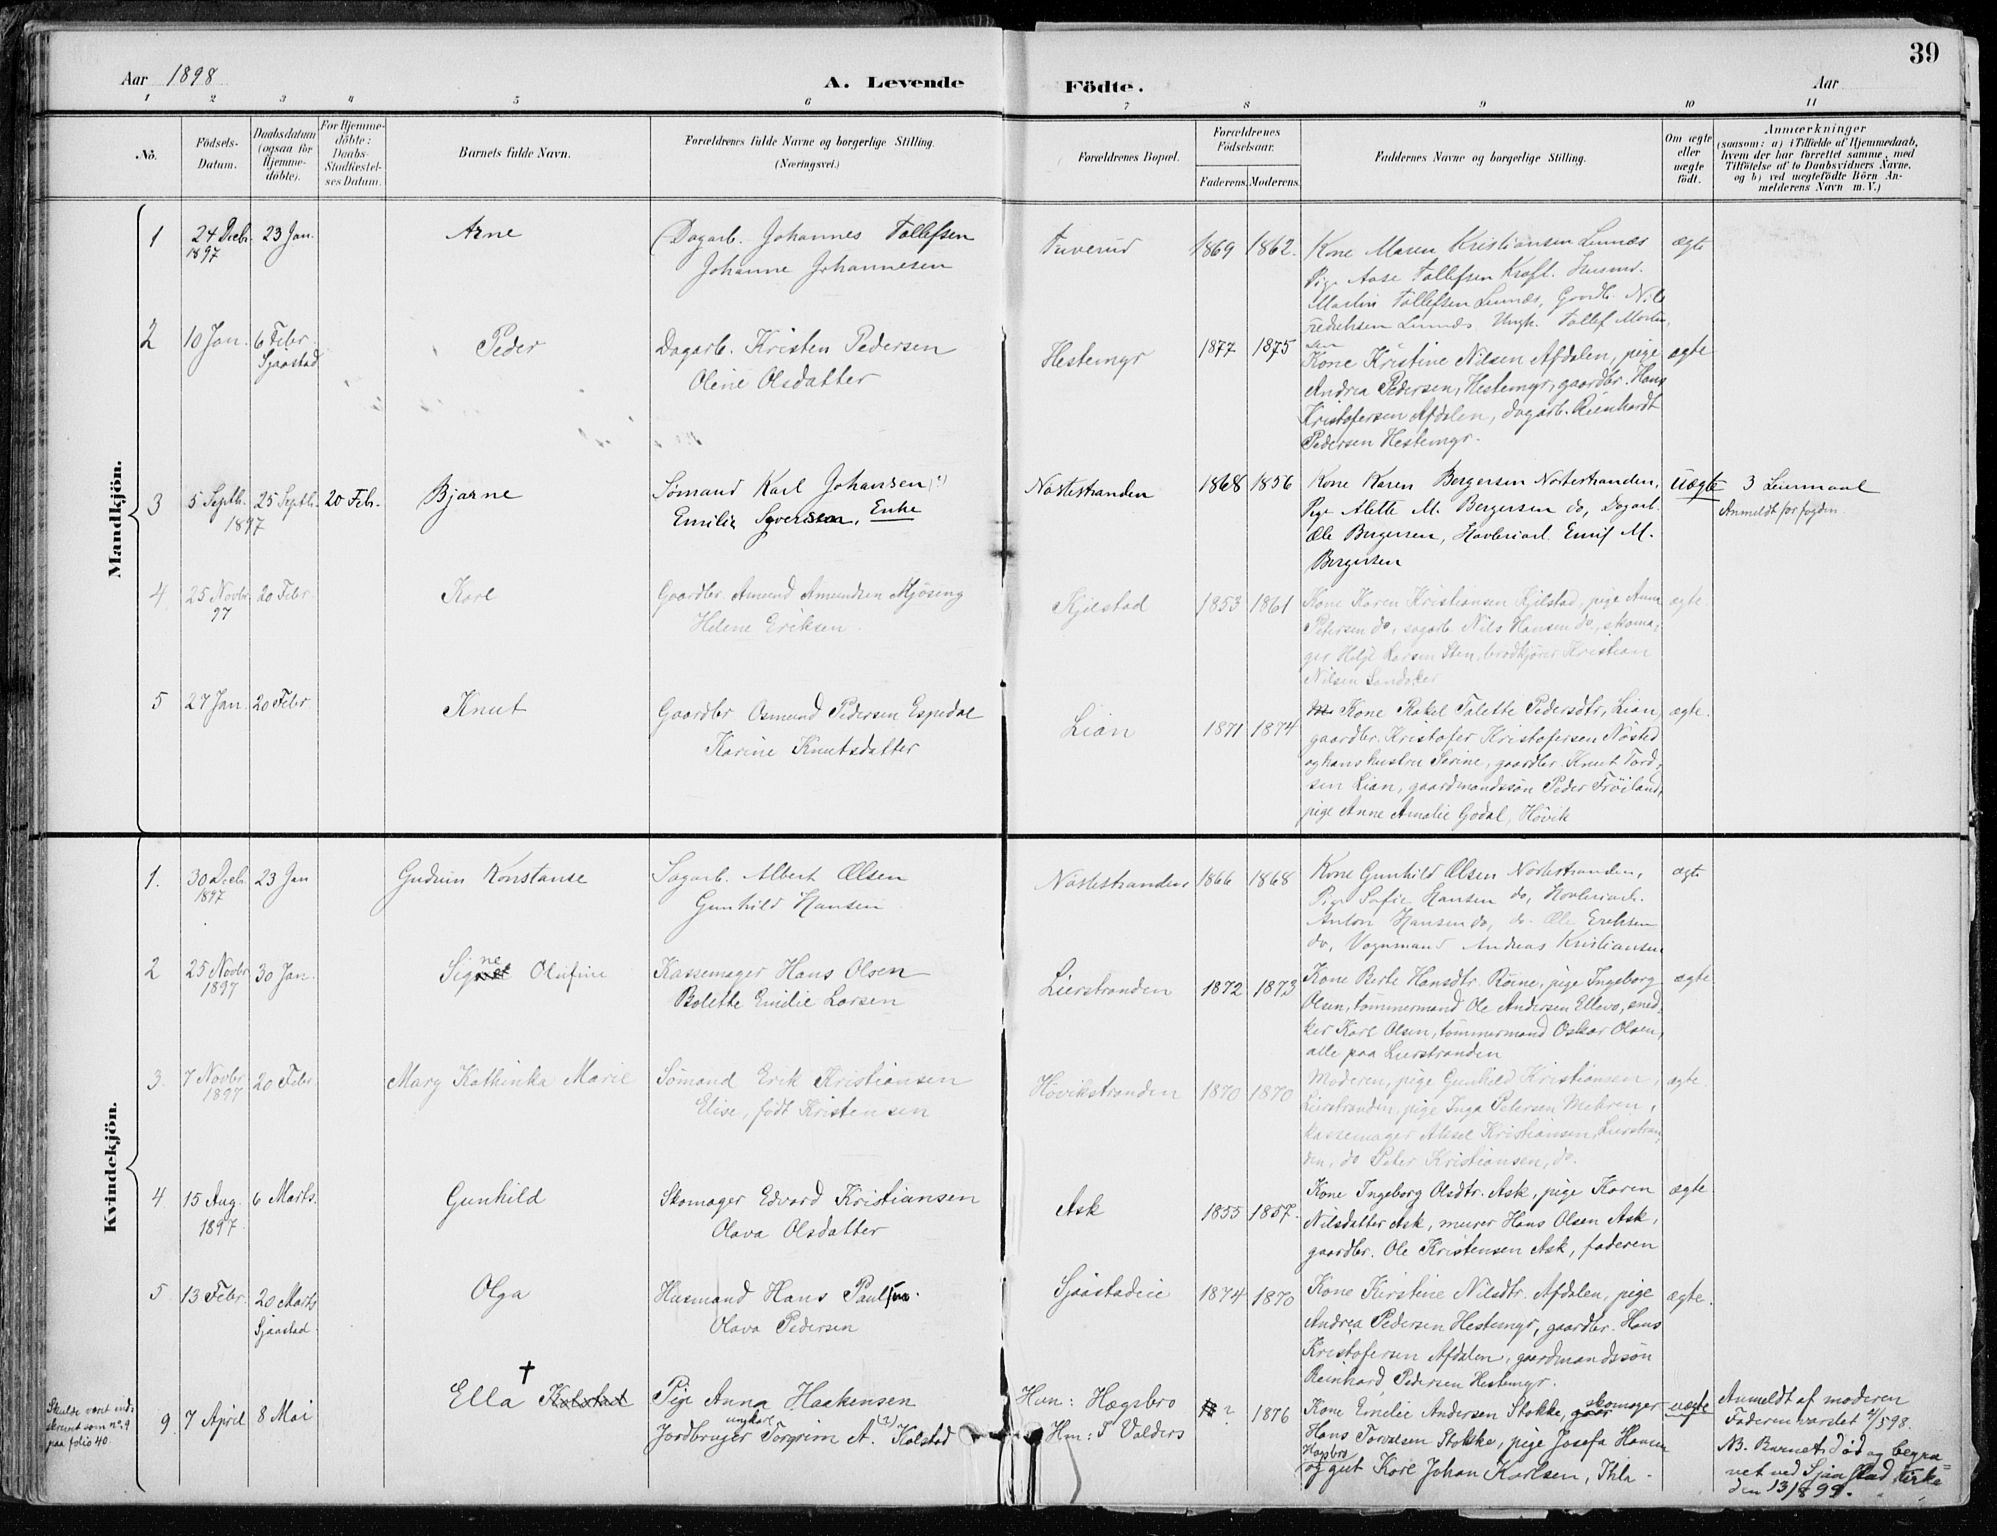 39
Aar 1898 A. Levende Födte. Aar
1 2 3 4 5 6 7 8 9 10 11
No. Födsels-Datum. Daabsdatum (ogsaa for Hjemme-döbte). For Hjemme-döbte: Daabs-Stadfæstel-ses Datum. Barnets fulde Navn. Forældrenes fulde Navne og borgerlige Stilling. (Næringsvei.) Forældrenes Bopæl. Forældrenes Födselsaar. Faderens. Moderens. Faddernes Navne og borgerlige Stilling. Om ægte eller uægte födt. Anmærkninger (saasom: a) i Tilfælde af Hjemmedaab, hvem der har forrettet samme, med Tilföielse af to Daabsvidners Navne, og b) ved uægtefödte Börn An-melderens Navn m. V.)
Mandkjön.
1 24 Decbr. 1897 23 Jan. Arne Dagarb. Johannes Tollefsen
Johanne Johannesen
Tuverud 1869 1862. Kone Maren Kristiansen Linnæs ægte
Pige Aase Tollefsen Kroft. Husmd.
Martin Tollefsen Linnæs, Gaardb. Nils
Fredriksen Linnæs Ungk. Tollef Morten
sen
2 10 Jan. 6 Febr. Sjaastad Peder Dagarb. Kristen Pedersen
Oline Olsdatter
Hestemyr 1877 1875 Kone Kristine Nilsen Afdalen, pige ægte
Andrea Pedersen, Hestemyr, gaardbr. Hans
Kristofersen Afdalen, dagarb. Reinhardt
Pedersen Hestemyr.
3 5 Septb. 1897 25 Septb. 20 Feb. Bjarne Sømand Karl Johansen
Emilie Syversen, Enke
Nøstestranden 1868 1856 Kone Karen Bergersen Nøstestranden, uægte 3 Leiermaal
Pige Alette M. Bergersen do, Dagarb. Anmeldt for fogden.
Ole Bergersen, Høvleriarb. Emil M.
Bergersen
4 25 Novbr. 97 20 Febr. Karl Gaardbr. Amund Amundsen Mjøsing
Helene Eriksen
Kjilstad 1853 1861 Kone Karen Kristiansen Kjilstad, pige Anna ægte.
Petersen do, sagarb. Nils Hansen do, skoma-
ger Helge Larsen Sten, brødkjører Kristian
Nilsen Sandaker
5 27 Jan. 20 Febr Knut Gaardbr Osmund Pedersen Espedal
Karine Knutsdatter
Lian 1871 1874 Kone Rakel Talette Pedersdtr, Lian, ægte.
gaardbr. Kristofer Kristofersen Nøsted
og hans hustru Serine, gaardbr. Knut Tord-
sen Lian, gaardmandssøn Peder Frøiland,
pige Anne Amalie Godal, Høvik
Kvindekjön.
1. 30 Decb. 1897 23 Jan Gudrun Konstanse Sagarb. Albert Olsen
Gunhild Hansen
Nøstestranden 1866 1868 Kone Gunhild Olsen Nøstestranden, ægte
Pige Sofie Hansen do, Høvleriarb.
Anton Hansen do, do Ole Eriksen
do, Vognmand Andreas Kristiansen
2 25 Novbr. 1897 30 Jan. Signe Olufine Kassemager Hans Olsen
Bolette Emilie Larsen
Lierstranden 1872 1873 Kone Berte Hansdtr. Røine, pige Ingeborg ægte
Olsen, tømmermand Ole Andersen Ellevo, sned-
ker Karl Olsen, tømmermand Oskar Olsen,
alle paa Lierstranden
3. 7 Novbr 1897 20 Febr Mary Kathinka Marie Sømand Erik Kristiansen
Elise, født Kristensen
Høvikstranden 1870 1870 Moderen, pige Gunhild Kristiansen, ægte.
Lierstranden, pige Inga Petersen Mehren,
kassemager Aksel Kristiansen, Lierstran-
den, do Peter Kristiansen, do.
4 15 Aug. 1897. 6 Marts. Gunhild Skomager Edvard Kristiansen
Olava Olsdatter
Ask 1855 1857. Kone Ingeborg Olsdtr. Ask, pige Karen ægte.
Nilsdatter Ask, murer Hans Olsen Ask,
gaardbr. Ole Kristensen Ask, faderen
5 13 Febr. 20 Marts Sjaastad. Olga Husmand Hans Paulsen.
Olava Pedersen
Sjaastadeie 1874 1870 Kone Kirstine Nilsdtr. Afdalen, pige ægte.
Andrea Pedersen Hestemyr, gaardbr. Hans
Kristofersen Afdalen, gaardmandssøn
Reinhard Pedersen Hestemyr.
Skulde været ind-
skrevet som no. 9
paa folio 40
9 7 April 8 Mai Ella † Kolstad Pige Anna Haakensen
Jordbruger ungkar Torgrim A. (2) Kolstad
Hun: Hægsbro ? 1876 Kone Emelie Andersen Stokke, skomager uægte Anmeldt af moderen
Hm: I Valders Hans Torvalsen Stokke, pige Josefa Hansen Faderen varslet 2/5 98.
Hagsbro NB. Barnet død og begra-
og gut Karl Johan Karlsen, vet ved Sjaastad kirke
den 13/8 99.